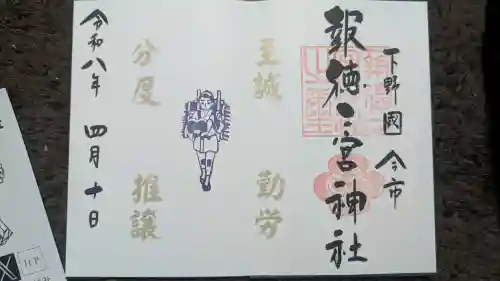 下野國 今市
報徳二宮神社
至誠
勤労
分度
推譲
令和八年 四月十日